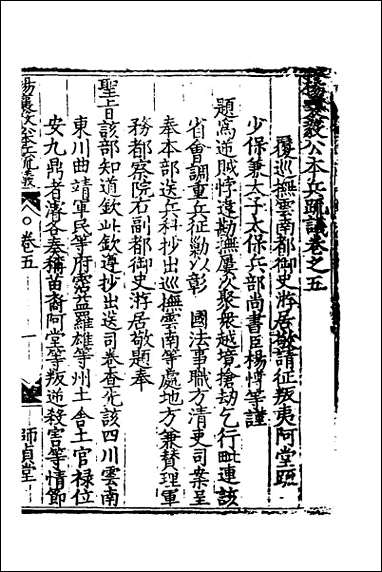 楊襄毅公本兵疏議卷之五
覆巡撫雲南都御史游居敬請征叛夷阿堂疏
少保兼太子太保兵部尚書臣楊博等謹
題為逆賊悖違勘撫屢次聚衆越境搶劫乞行毗連該
省會調重兵征勦以彰　國法事職方清吏司案呈
奉本部送兵科抄出巡撫雲南等處地方兼贊理軍
務都察院右副都御史游居敬題奉
聖旨該部知道欽此欽遵抄出送司卷查先該四川雲南
東川曲靖軍民等府霑益羅雄等州土舍土官祿位
安九鼎者濬各奏稱苗裔阿堂等叛逆殺害等情節
楊襄毅公本兵疏議
卷五
師貞堂